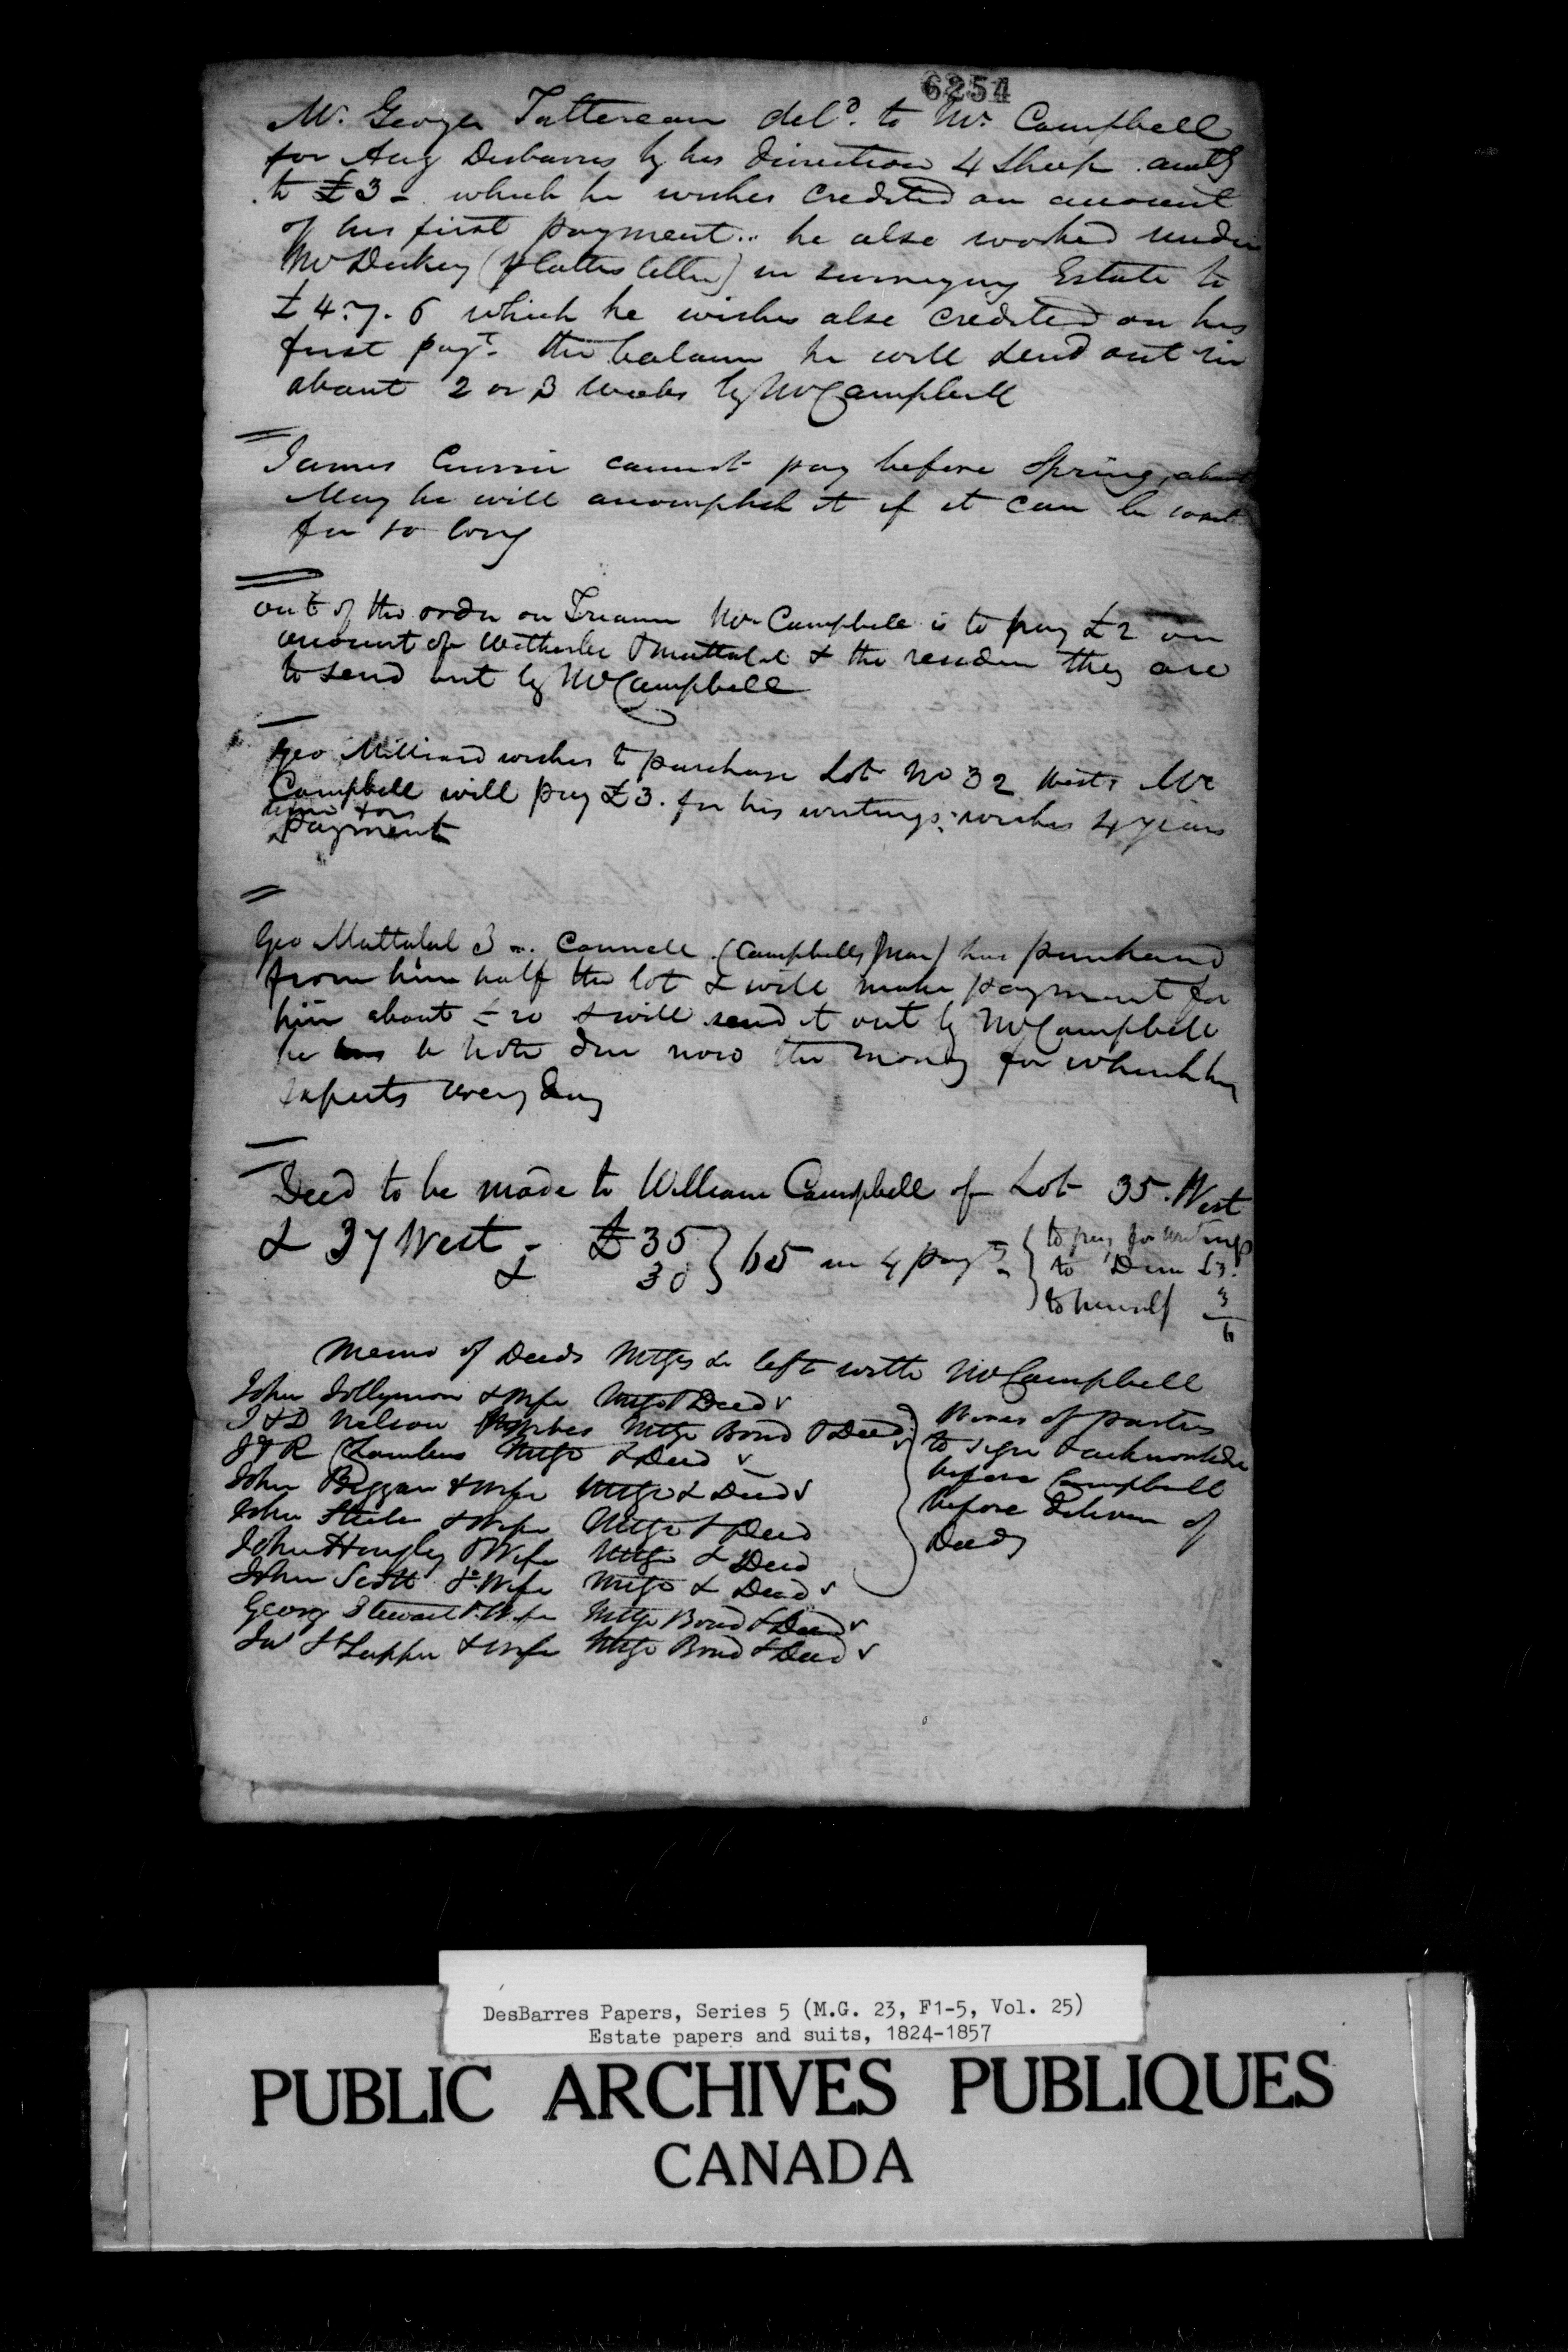 6254
Mr. George Tattersan deld. to Mr. Campbell
for Aug Desbarres by his direction 4 Sheep amtg
to £3 - which he wishes credited on account
of his first payment .. he also worked under
Mr Dickey (p latters letter) in surveying Estate to
£4.7.6 which he wishes also credited on his
first payt. the balance he will send out in
about 2 or 3 weeks by Mr Campbell
James Currie cannot pay before Spring, about
May he will accomplish it if it can be wait
for so long
out of the order on Treasr Mr Campbell is to pay £2 on
account of & Mattatal & the they are
to send out by Mr Campbell
Geo Milliard wishes to purchase Lot No 32 West Mr
Campbell will pay £3. for his writings, wishes 4 years
time for
payment
Geo Mattatal 3 Connell (Campbells man) has purchased
from him half the lot & will make payment for
him about £20 & will send it out by Mr Campbell
he has a note due now the money for which he
expects every day
Deed to be made to William Campbell of Lot 35. West
& 37 West - £35 } 65 in 4 payts { to pay for writings
& 30 to Dun £3.
to himself 3
6
Memo of Deeds Mtges &c left with Mr Campbell
John Jollymore & Wife Mtge & Deed ✓
J & D Nelson & Wives Mtge Bond & Deed ✓
J & R Chambers Mtge & Deed ✓
John Biggar & Wife Mtge & Deed ✓
John Steele & Wife Mtge & Deed
John Hingley & Wife Mtge & Deed
John Scott & Wife Mtge & Deed ✓
George Stewart & Wife Mtge Bond & Deed ✓
& Wife Mtge Bond & Deed ✓
Wives of parties
to sign & acknowledge
before Campbell
before Delivery of
Deeds
DesBarres Papers, Series 5 (M.G. 23, F1-5, Vol. 25)
Estate papers and suits, 1824-1857
PUBLIC ARCHIVES PUBLIQUES
CANADA